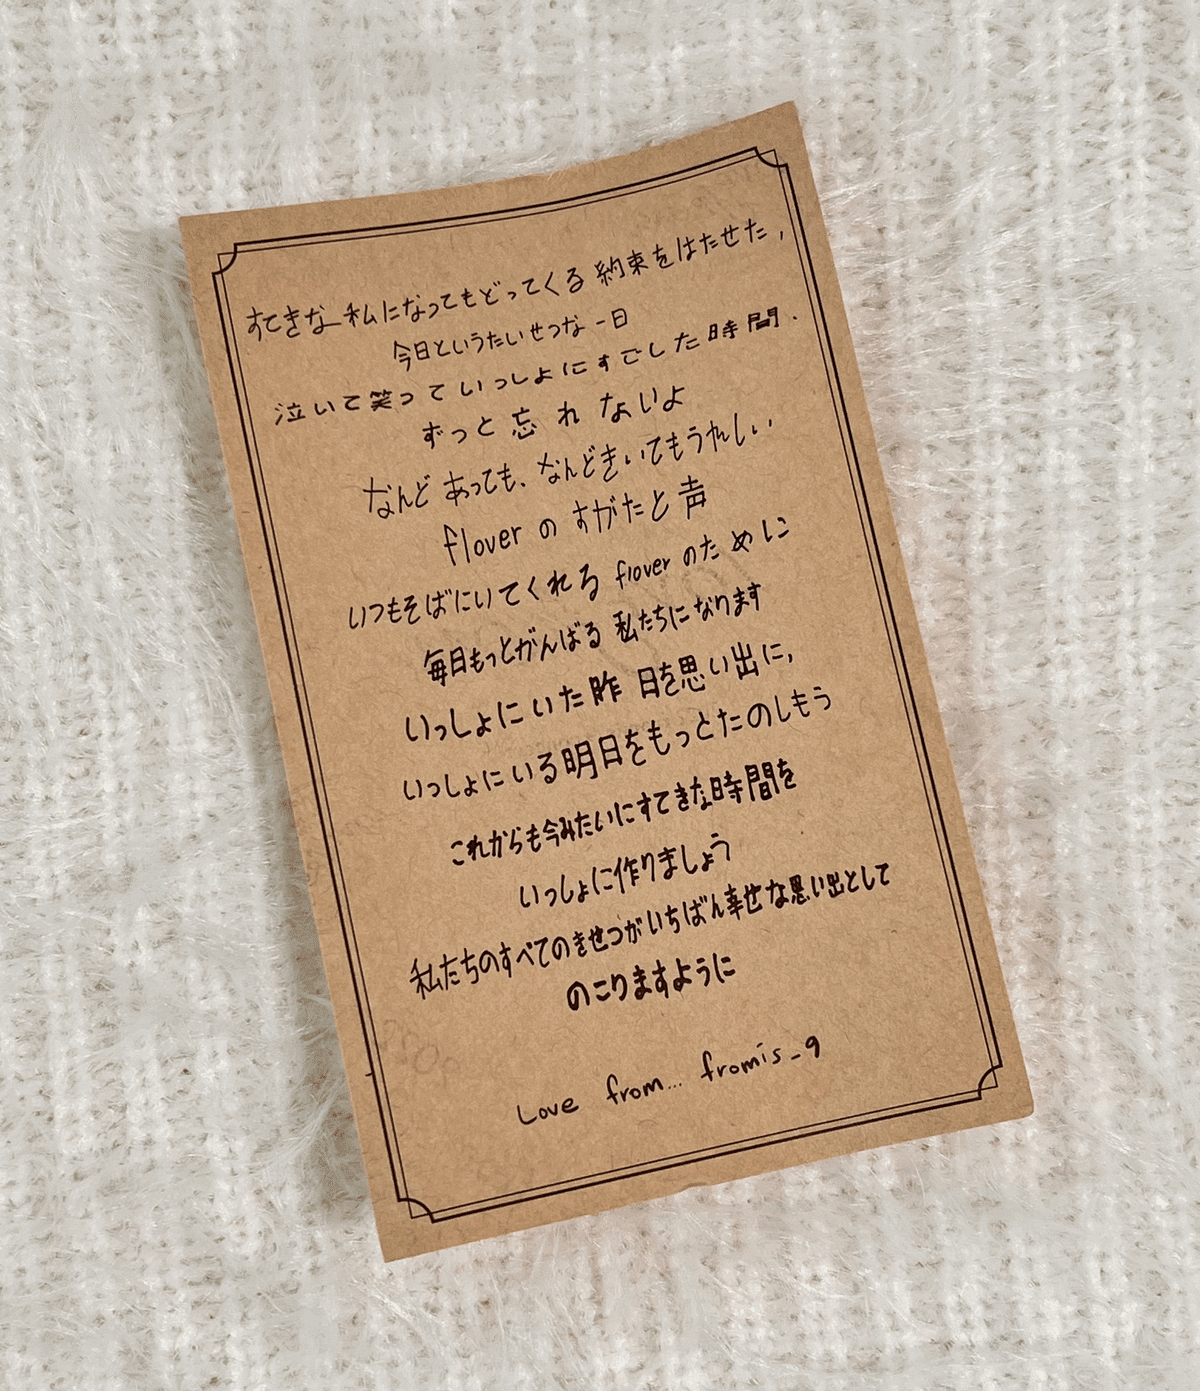 すてきな私になってもどってくる約束をはたせた,
今日というたいせつな一日
泣いて笑っていっしょにすごした時間.
ずっと忘れないよ
なんどあっても、なんどきいてもうれしい
floverのすがたと声
いつもそばにいてくれるfloverのために
毎日もっとがんばる私たちになります
いっしょにいた昨日を思い出に,
いっしょにいる明日をもっとたのしもう
これからも今みたいにすてきな時間を
いっしょに作りましょう
私たちのすべてのきせつがいちばん幸せな思い出として
のこりますように
Love from... fromis_9